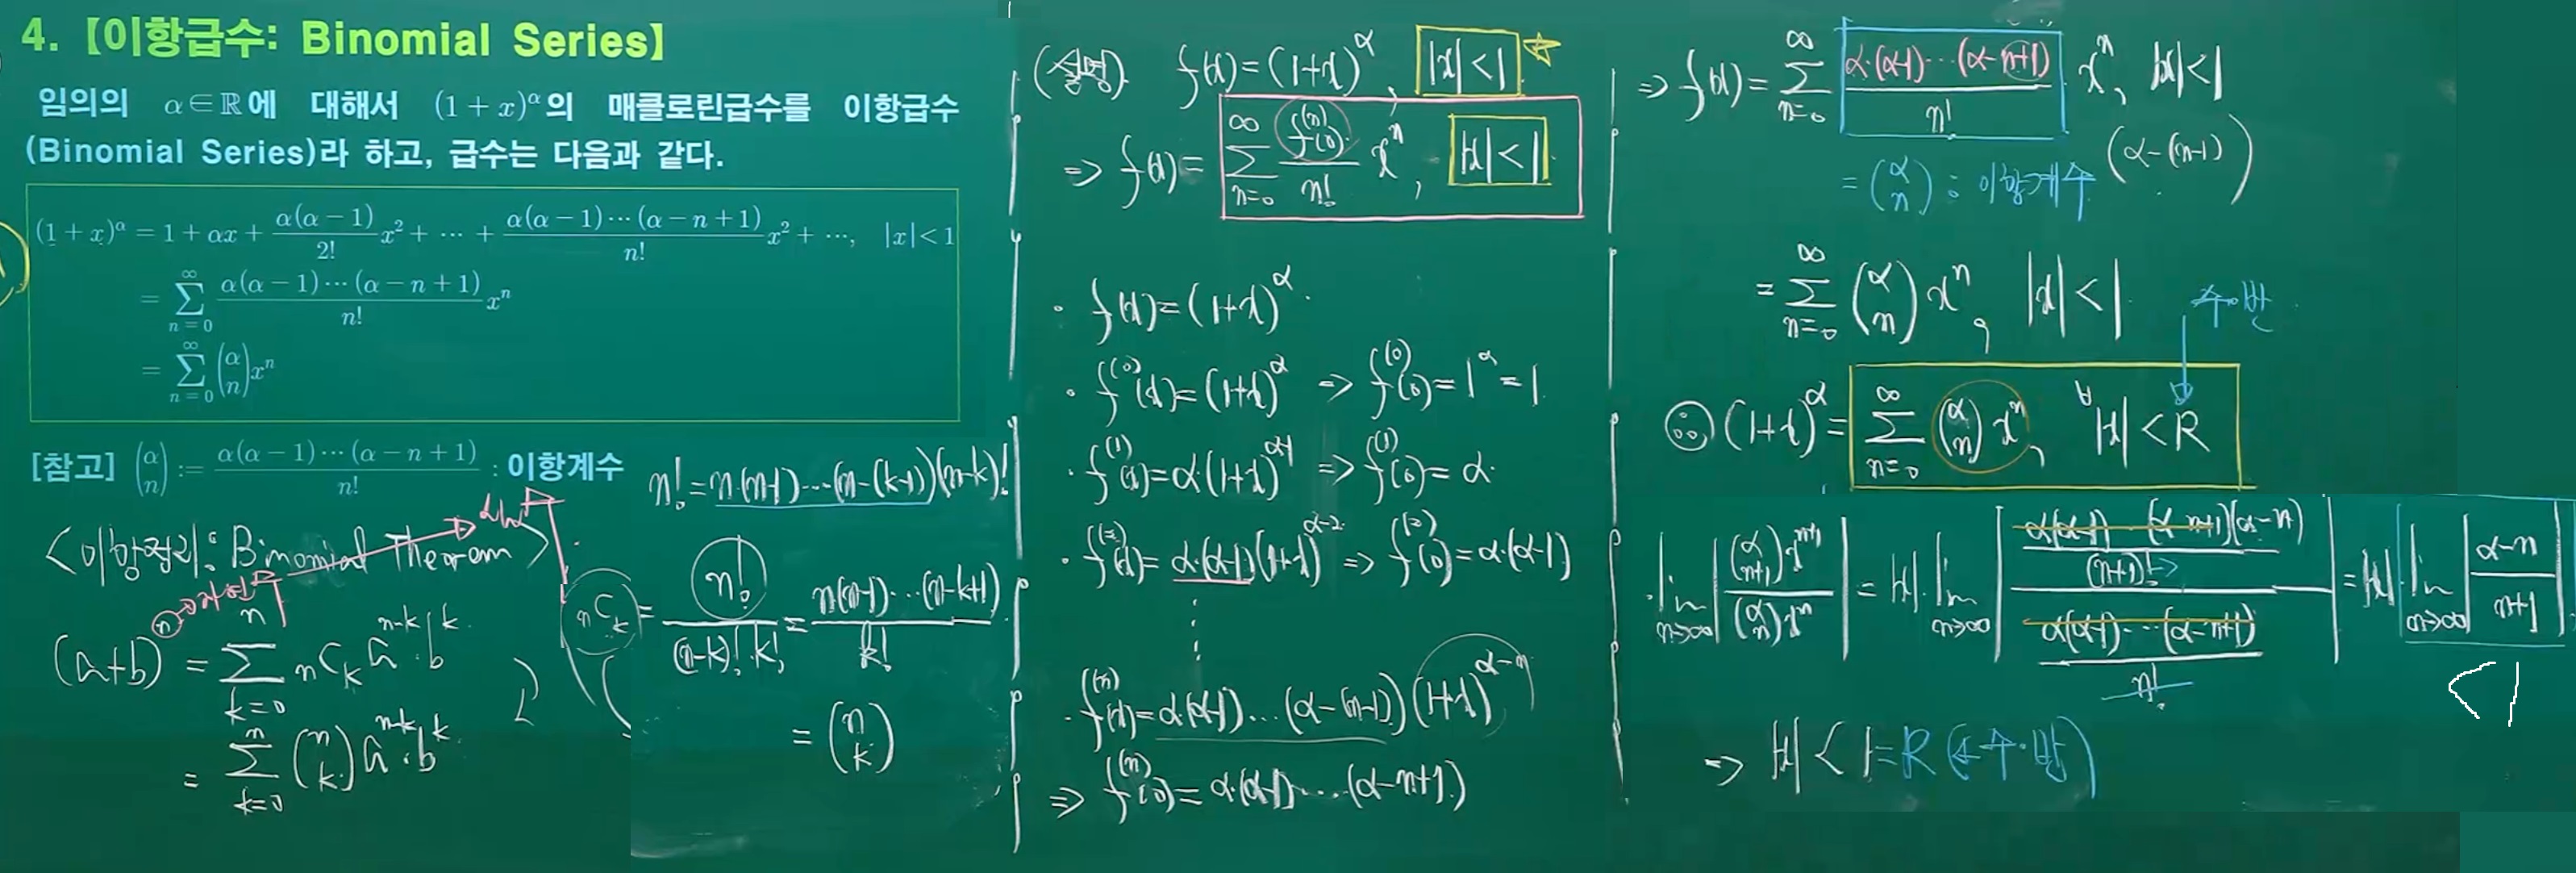 4. 【이항급수: Binomial Series】
임의의 α∈ℝ에 대해서 (1+x)^α의 매클로린급수를 이항급수
(Binomial Series)라 하고, 급수는 다음과 같다.
(1+x)^α = 1 + αx + α(α-1)/2! x^2 + ⋯ + α(α-1)⋯(α-n+1)/n! x^2 + ⋯, |x|<1
= ∑_{n=0}^{∞} α(α-1)⋯(α-n+1)/n! x^n
= ∑_{n=0}^{∞} (α n) x^n
[참고] (α n) := α(α-1)⋯(α-n+1)/n! : 이항계수
<이항정리: Binomial Theorem>
(a+b)^n = ∑_{k=0}^{n} nCk a^{n-k}·b^k
= ∑_{k=0}^{n} (n k) a^{n-k}·b^k
n! = n·(n-1)⋯(n-(k-1))(n-k)!
nCk = n!/(n-k)!·k! = n(n-1)⋯(n-k+1)/k!
= (n k)
(설명) f(x)=(1+x)^α, |x|<1
⇒ f(x)= ∑_{n=0}^{∞} f^(n)(0)/n! x^n, |x|<1
· f(x)=(1+x)^α
· f^(0)(x)=(1+x)^α ⇒ f^(0)(0)=1^α=1
· f^(1)(x)=α·(1+x)^{α-1} ⇒ f^(1)(0)=α
· f^(2)(x)=α·(α-1)(1+x)^{α-2} ⇒ f^(2)(0)=α·(α-1)
⋮
· f^(n)(x)=α·(α-1)⋯(α-(n-1))(1+x)^{α-n}
⇒ f^(n)(0)=α·(α-1)⋯(α-n+1)
⇒ f(x)= ∑_{n=0}^{∞} α·(α-1)⋯(α-n+1)/n! x^n, |x|<1
(α-(n-1))
= (α n) : 이항계수
= ∑_{n=0}^{∞} (α n) x^n, |x|<1
수·반
∴ (1+x)^α = ∑_{n=0}^{∞} (α n) x^n, ∀|x|<R
lim_{n→∞} |(α n+1)x^{n+1}/(α n)x^n| = |x|·lim_{n→∞} |α(α-1)⋯(α-n+1)(α-n)/(n+1)! / α(α-1)⋯(α-n+1)/n!| = |x| lim_{n→∞} |α-n/n+1|
<1
⇒ |x|<1=R